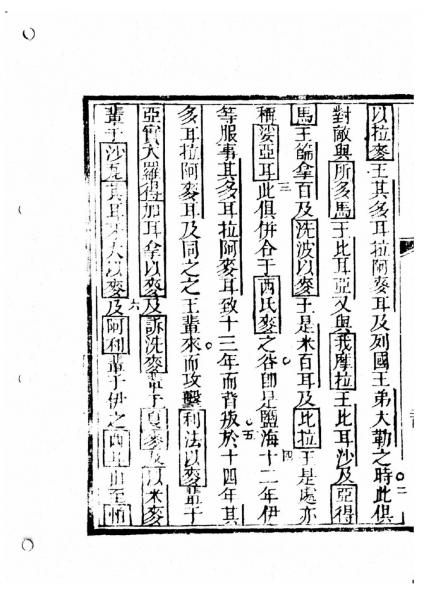 以拉麥王其多耳拉阿麥耳及列國王弟大勒之時二此俱
對敵與所多馬王比耳亞又與我摩拉王比耳沙及亞得
馬王篩拿百及洗波以麥王是米百耳及比拉王是處亦
稱瑣亞耳三此俱併合于西氏麥之谷即是鹽海四十二年伊
等服事其多耳拉阿麥耳致十三年而背叛五於十四年其
多耳拉阿麥耳及同之之王輩來而攻擊利法以麥輩于
亞實大羅得加耳拿以麥及訴洗麥輩于麥及以米麥
輩于沙其耳大以麥六及阿利輩于伊之西耳山至怕